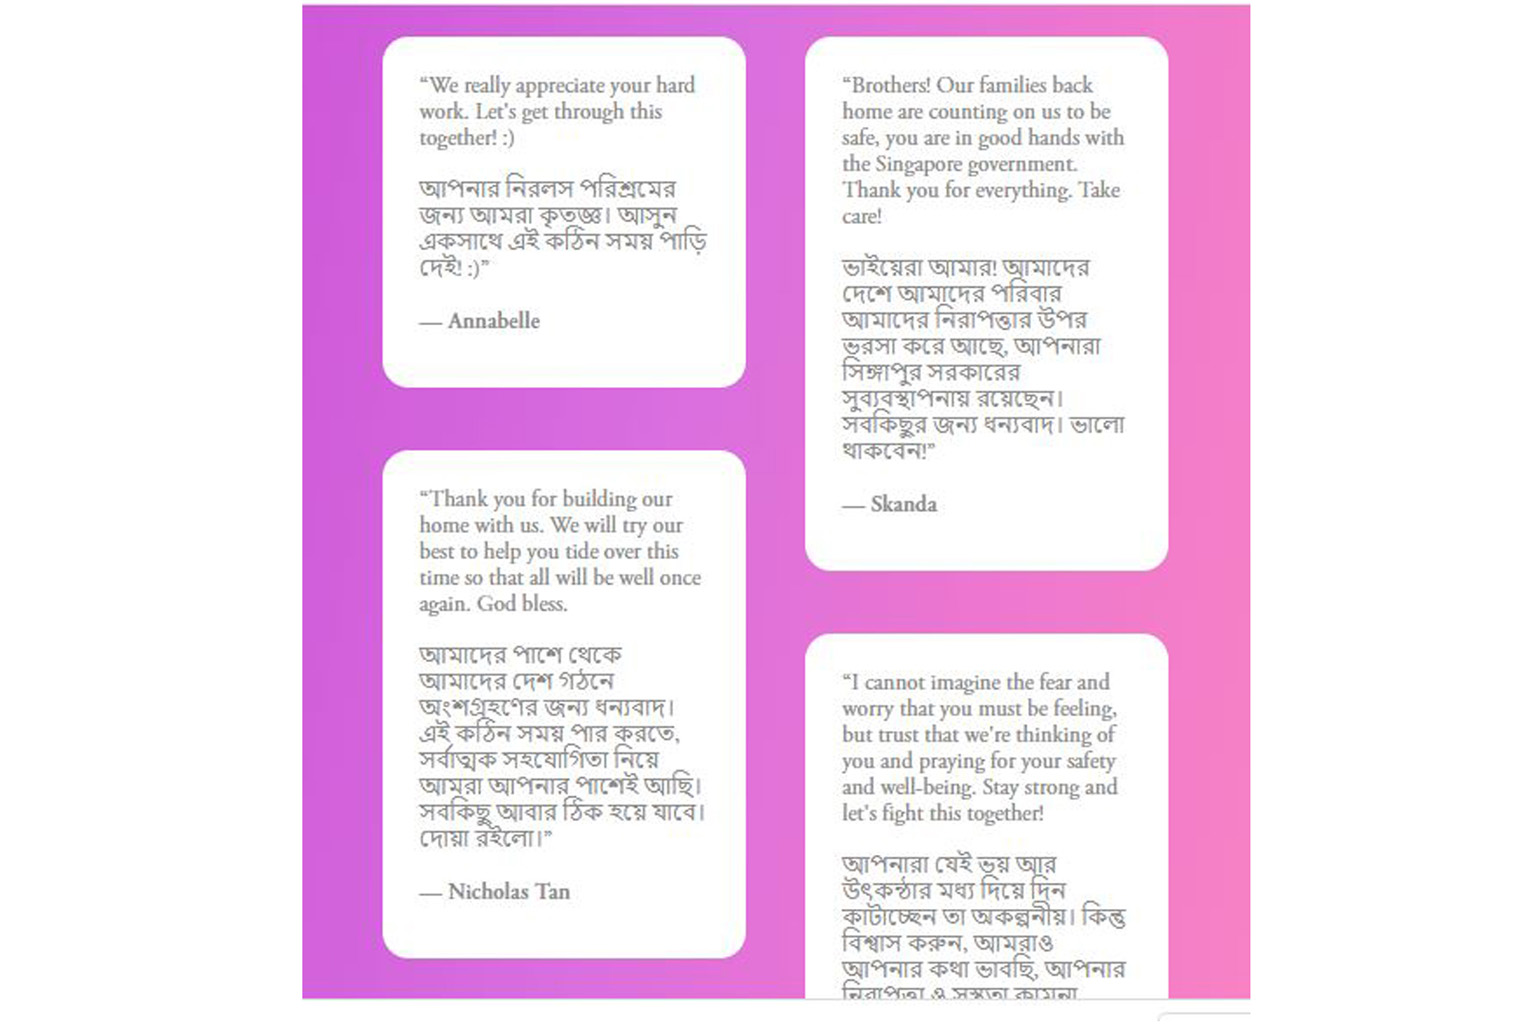 “We really appreciate your hard
work. Let's get through this
together! :)
আপনার নিরলস পরিশ্রমের
জন্য আমরা কৃতজ্ঞ। আসুন
একসাথে এই কঠিন সময় পাড়ি
দেই! :)”
— Annabelle
“Thank you for building our
home with us. We will try our
best to help you tide over this
time so that all will be well once
again. God bless.
আমাদের পাশে থেকে
আমাদের দেশ গঠনে
অংশগ্রহণের জন্য ধন্যবাদ।
এই কঠিন সময় পার করতে,
সর্বাত্মক সহযোগিতা নিয়ে
আমরা আপনার পাশেই আছি।
সবকিছু আবার ঠিক হয়ে যাবে।
দোয়া রইলো।”
— Nicholas Tan
“Brothers! Our families back
home are counting on us to be
safe, you are in good hands with
the Singapore government.
Thank you for everything. Take
care!
ভাইয়েরা আমার! আমাদের
দেশে আমাদের পরিবার
আমাদের নিরাপত্তার উপর
ভরসা করে আছে, আপনারা
সিঙ্গাপুর সরকারের
সুব্যবস্থাপনায় রয়েছেন।
সবকিছুর জন্য ধন্যবাদ। ভালো
থাকবেন!”
— Skanda
“I cannot imagine the fear and
worry that you must be feeling,
but trust that we're thinking of
you and praying for your safety
and well-being. Stay strong and
let's fight this together!
আপনারা যেই ভয় আর
উৎকন্ঠার মধ্য দিয়ে দিন
কাটাচ্ছেন তা অকল্পনীয়। কিন্তু
বিশ্বাস করুন, আমরাও
আপনার কথা ভাবছি, আপনার
নিরাপত্তা ও সুস্থতা কামনা